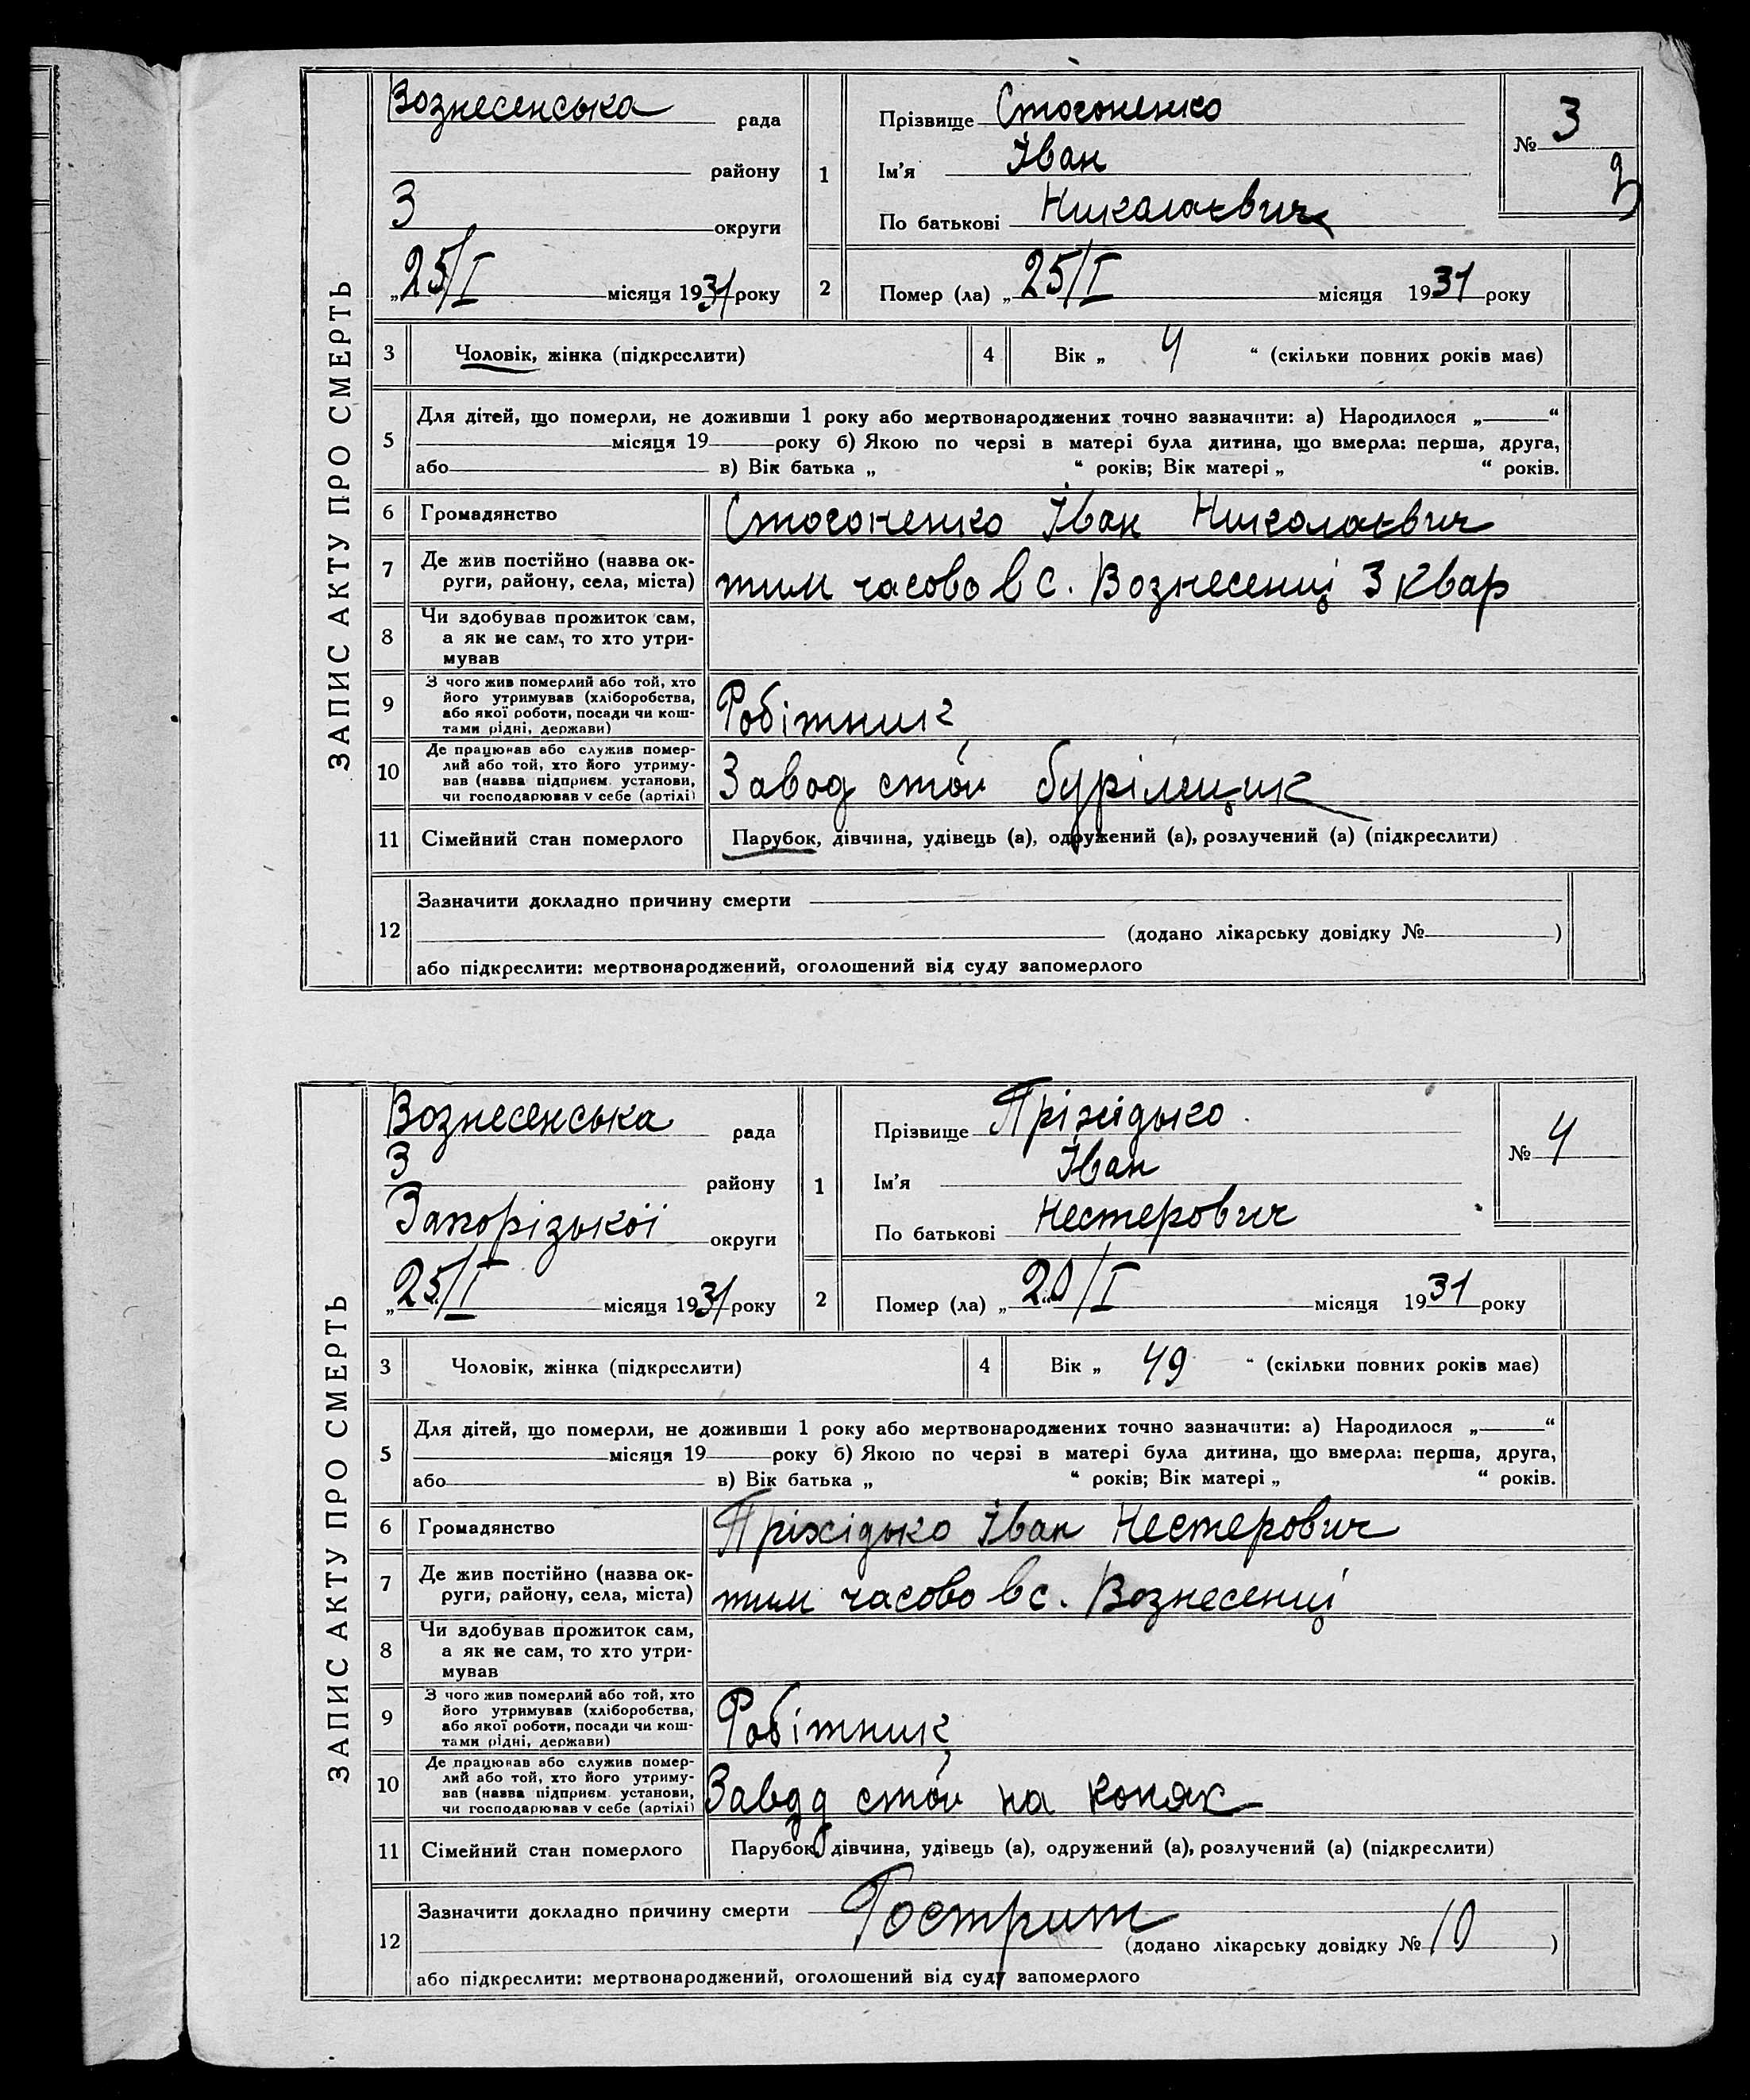 ЗАПИС АКТУ ПРО СМЕРТЬ
Вознесенська рада
району
3 округи
„25/I місяця 1931 року
1
Прізвище Стогоненко
Ім'я Іван
По батькові Николаєвич
№ 3
3
2
Помер (ла) „25/I місяця 1931 року
3 Чоловік, жінка (підкреслити)
4 Вік „ 4 “ (скільки повних років має)
5 Для дітей, що померли, не доживши 1 року або мертвонароджених точно зазначити: а) Народилося „ “
місяця 19 року б) Якою по черзі в матері була дитина, що вмерла: перша, друга,
або в) Вік батька „ “ років; Вік матері „ “ років.
6 Громадянство Стогоненко Іван Николаєвич
7 Де жив постійно (назва ок-
руги, району, села, міста) тим часово в с. Вознесенці 3 квар
8 Чи здобував прожиток сам,
а як не сам, то хто утри-
мував
9 З чого жив померлий або той, хто
його утримував (хліборобства,
або якої роботи, посади чи кош-
тами рідні, держави) Робітник
10 Де працював або служив помер-
лий або той, хто його утриму-
вав (назва підприєм. установи,
чи господарював у себе (артілі) Завод стой
11 Сімейний стан померлого Парубок, дівчина, удівець (а), одружений (а), розлучений (а) (підкреслити)
12 Зазначити докладно причину смерти
(додано лікарську довідку № )
або підкреслити: мертвонароджений, оголошений від суду запомерлого
ЗАПИС АКТУ ПРО СМЕРТЬ
Вознесенська рада
3 району
Запорізької округи
„25/I місяця 1931 року
1
Прізвище Пріхідько
Ім'я Іван
По батькові Нестерович
№ 4
2
Помер (ла) „20/I місяця 1931 року
3 Чоловік, жінка (підкреслити)
4 Вік „ 49 “ (скільки повних років має)
5 Для дітей, що померли, не доживши 1 року або мертвонароджених точно зазначити: а) Народилося „ “
місяця 19 року б) Якою по черзі в матері була дитина, що вмерла: перша, друга,
або в) Вік батька „ “ років; Вік матері „ “ років.
6 Громадянство Пріхідько Іван Нестерович
7 Де жив постійно (назва ок-
руги, району, села, міста) тим часово в с. Вознесенці
8 Чи здобував прожиток сам,
а як не сам, то хто утри-
мував
9 З чого жив померлий або той, хто
його утримував (хліборобства,
або якої роботи, посади чи кош-
тами рідні, держави) Робітник
10 Де працював або служив помер-
лий або той, хто його утриму-
вав (назва підприєм. установи,
чи господарював у себе (артілі) Завод стой на коняк
11 Сімейний стан померлого Парубок, дівчина, удівець (а), одружений (а), розлучений (а) (підкреслити)
12 Зазначити докладно причину смерти Гострит
(додано лікарську довідку № 10 )
або підкреслити: мертвонароджений, оголошений від суду запомерлого